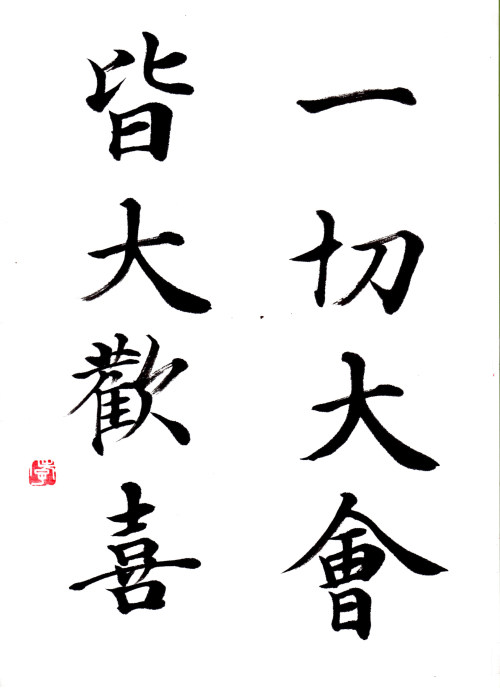 一切大會
皆大歡喜